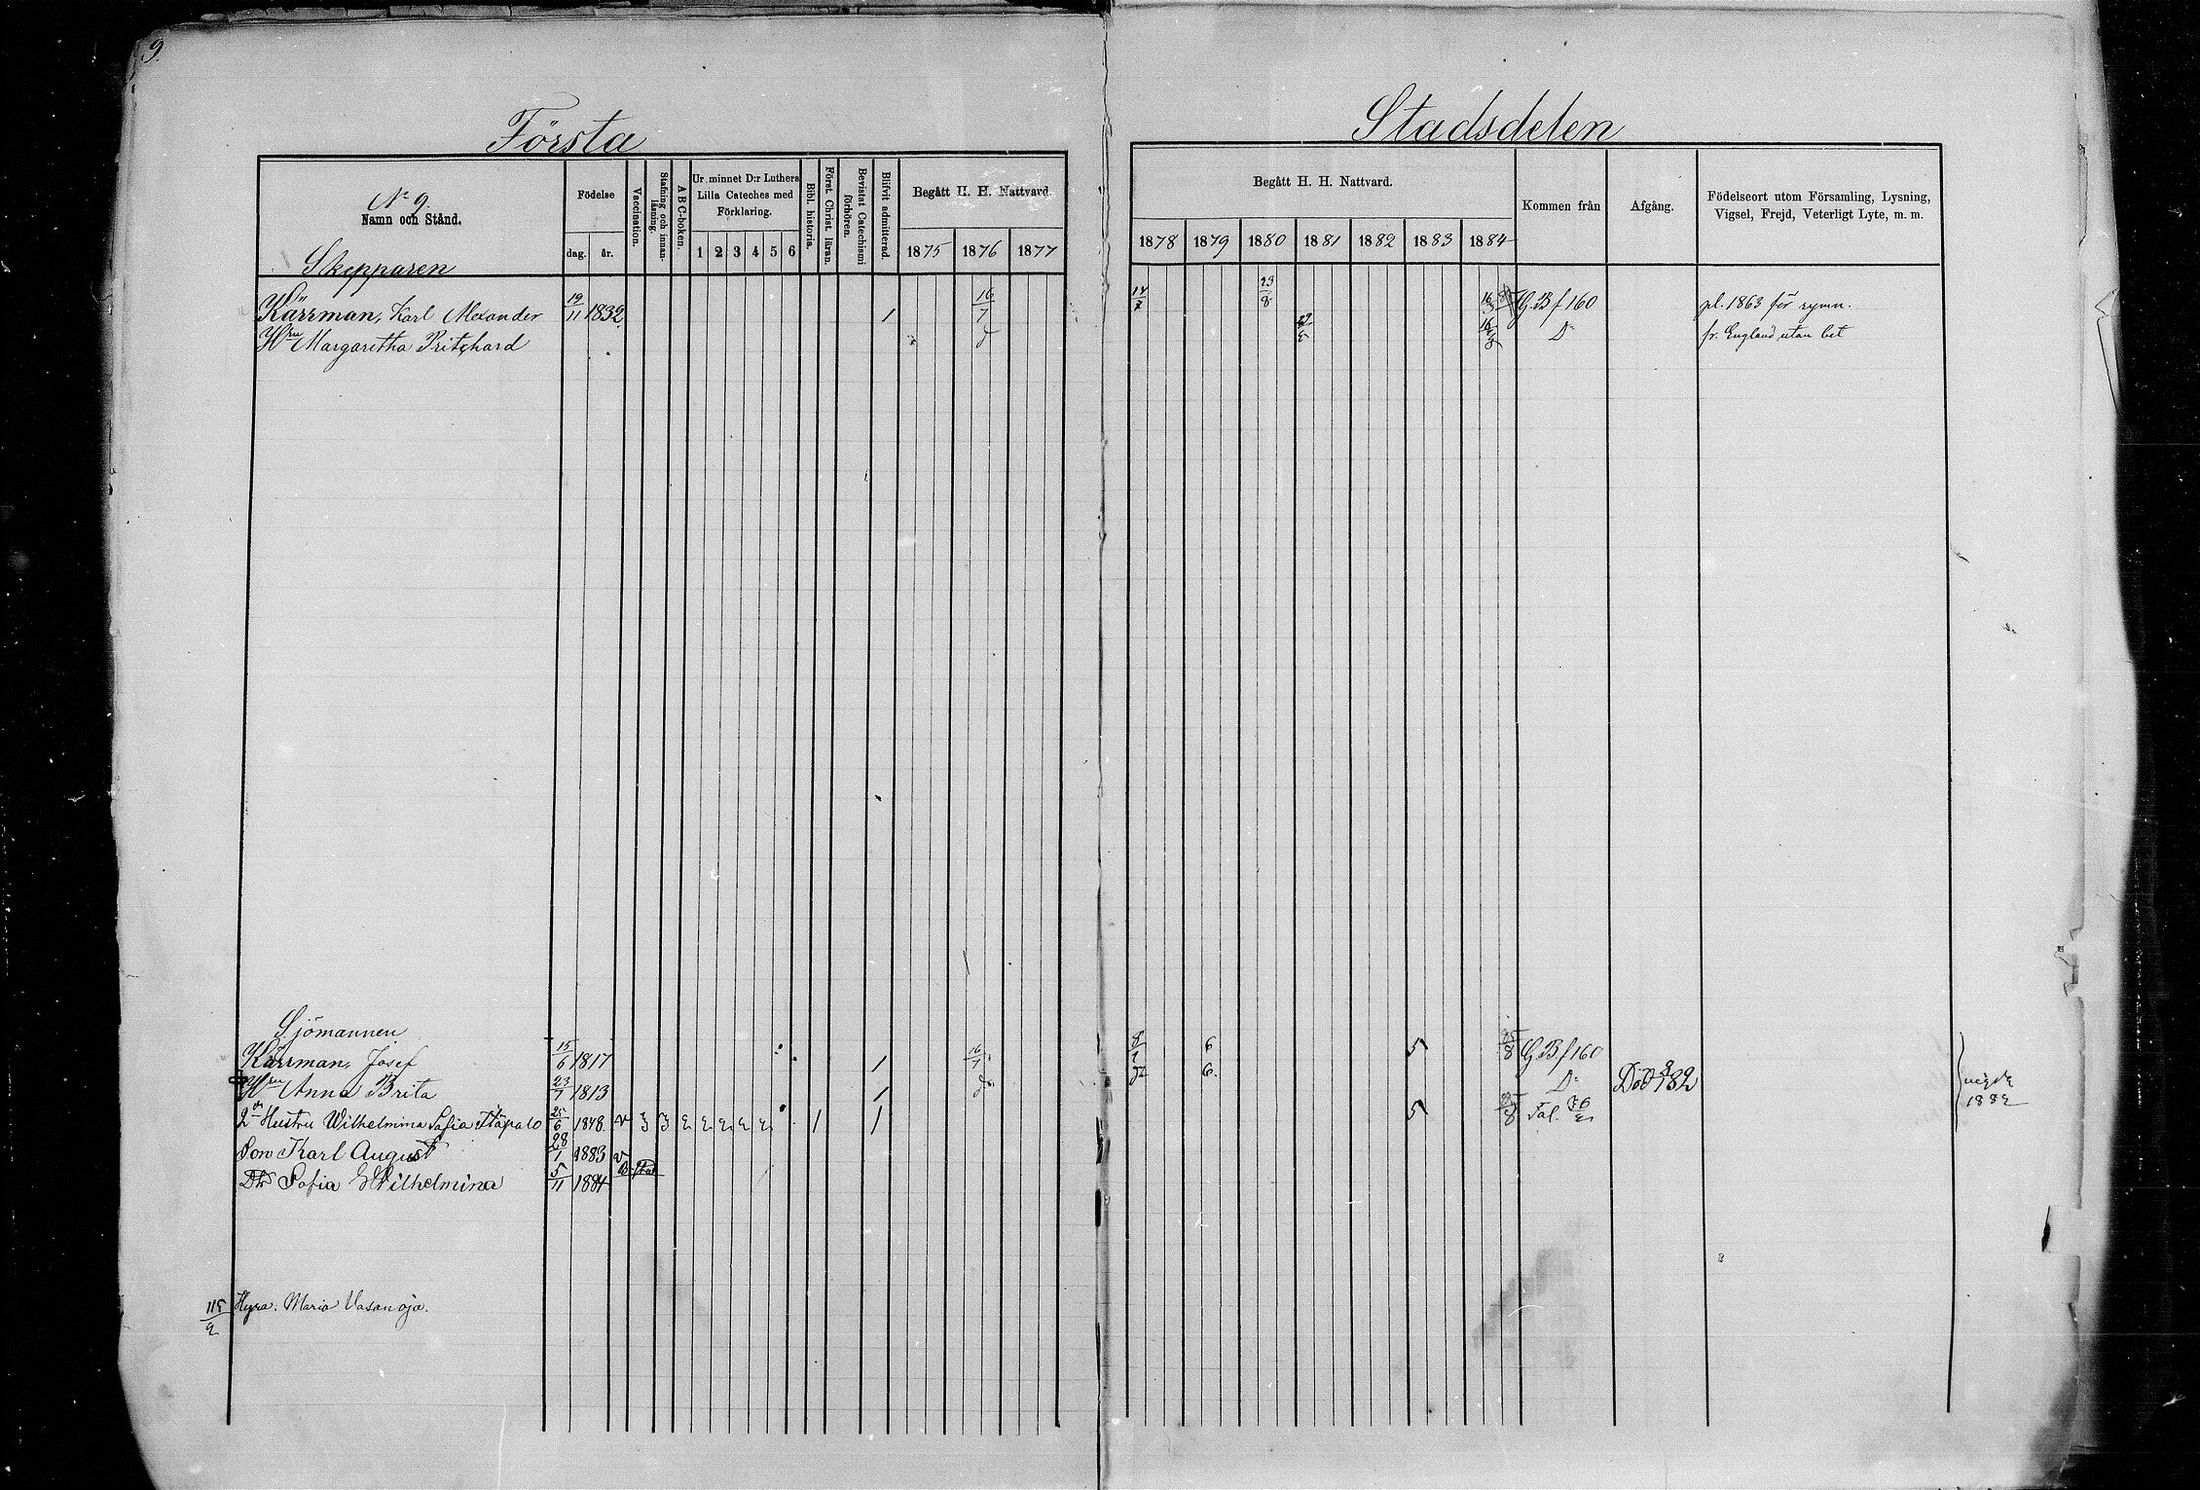 9.
Första
Stadsdelen
No 9.
Namn och Stånd.
Födelse
dag. år.
Vaccination.
Stafning och innanläsning.
ABC-boken.
Ur minnet D:r Luthers Lilla Cateches med Förklaring.
1 2 3 4 5 6
Bibl. historia.
Först. Christ. läran.
Bevistat Catechismi förhören.
Blifvit admitterad.
Begått H. H. Nattvard.
1875 1876 1877
Begått H. H. Nattvard.
1878 1879 1880 1881 1882 1883 1884
Kommen från
Afgång.
Födelseort utom Församling, Lysning, Vigsel, Frejd, Veterligt Lyte, m. m.
Skepparen
Kärrman, Karl Alexander 19/11 1832 1 16/7 23/8 G.B f 160 pl. 1863 för rymn.
Hru Margaretha Pritchard D:o fr. England utan bet
Sjömannen
Kärrman, Josef 15/6 1817 1 16/7 6 5 25/8 G.B f 160
Hru Anna Brita 23/7 1813 1 6. D:o Död 182
2dra Hustru Wilhelmina Sofia 25/6 1848 v 3 3 1 1 5 25/8
1882
Son Karl August 28/1 1883 v
Dtr Sofia Wilhelmina 5/11 1884
115/2 Hyra. Maria Vasanoja.